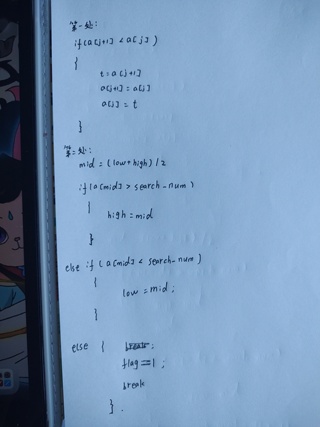 第一处:
if(a[j+1] < a[j])
{
t = a[j+1]
a[j+1] = a[j]
a[j] = t
}
第二处:
mid = (low+high)/2
if(a[mid] > search_num)
{
high = mid
}
else if(a[mid] < search_num)
{
low = mid;
}
else {
flag==1;
break
}.